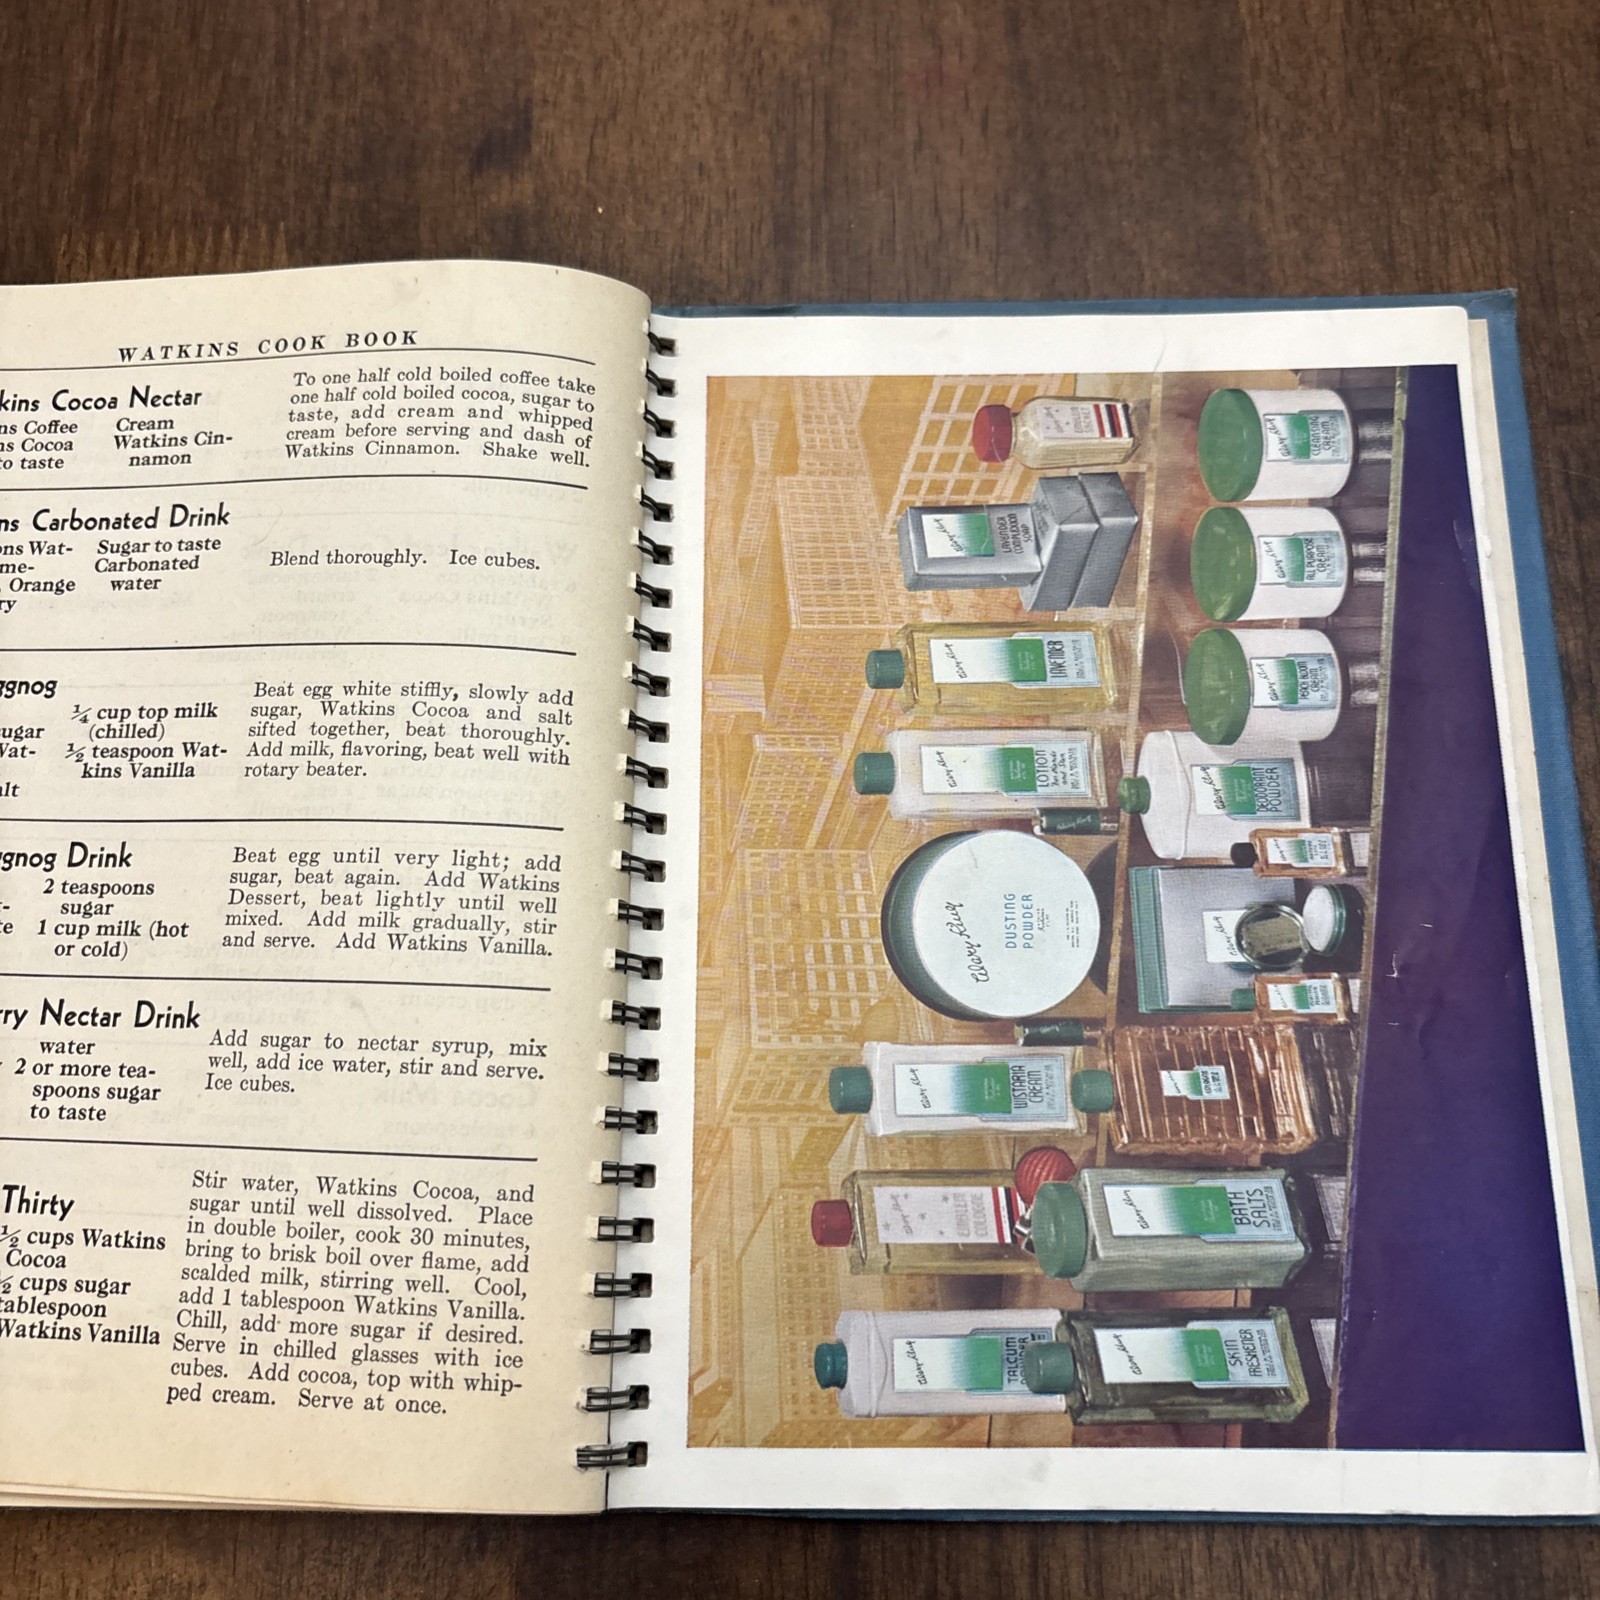 WATKINS COOK BOOK
kins Cocoa Nectar
ns Coffee
ns Cocoa
to taste
Cream
Watkins Cin-
namon
To one half cold boiled coffee take
one half cold boiled cocoa, sugar to
taste, add cream and whipped
cream before serving and dash of
Watkins Cinnamon. Shake well.
ns Carbonated Drink
ons Wat-
me-
, Orange
ry
Sugar to taste
Carbonated
water
Blend thoroughly. Ice cubes.
ggnog
ugar
Wat-
alt
¼ cup top milk
(chilled)
½ teaspoon Wat-
kins Vanilla
Beat egg white stiffly, slowly add
sugar, Watkins Cocoa and salt
sifted together, beat thoroughly.
Add milk, flavoring, beat well with
rotary beater.
ggnog Drink
t-
te
2 teaspoons
sugar
1 cup milk (hot
or cold)
Beat egg until very light; add
sugar, beat again. Add Watkins
Dessert, beat lightly until well
mixed. Add milk gradually, stir
and serve. Add Watkins Vanilla.
rry Nectar Drink
water
2 or more tea-
spoons sugar
to taste
Add sugar to nectar syrup, mix
well, add ice water, stir and serve.
Ice cubes.
Thirty
½ cups Watkins
Cocoa
½ cups sugar
tablespoon
Watkins Vanilla
Stir water, Watkins Cocoa, and
sugar until well dissolved. Place
in double boiler, cook 30 minutes,
bring to brisk boil over flame, add
scalded milk, stirring well. Cool,
add 1 tablespoon Watkins Vanilla.
Chill, add more sugar if desired.
Serve in chilled glasses with ice
cubes. Add cocoa, top with whip-
ped cream. Serve at once.
Mary King
TALCUM
Mary King
SKIN
FRESHENER
Mary King
COLOGNE
Mary King
BATH
SALTS
Mary King
WISTARIA
CREAM
Mary King
DUSTING
POWDER
Mary King
LOTION
for Hands
and Skin
Mary King
DEODORANT
POWDER
Mary King
LAVENDER
Mary King
PEACH BLOOM
CREAM
Mary King
LAVENDER
COMPLEXION
SOAP
Mary King
ALL PURPOSE
CREAM
Mary King
CLEANSING
CREAM